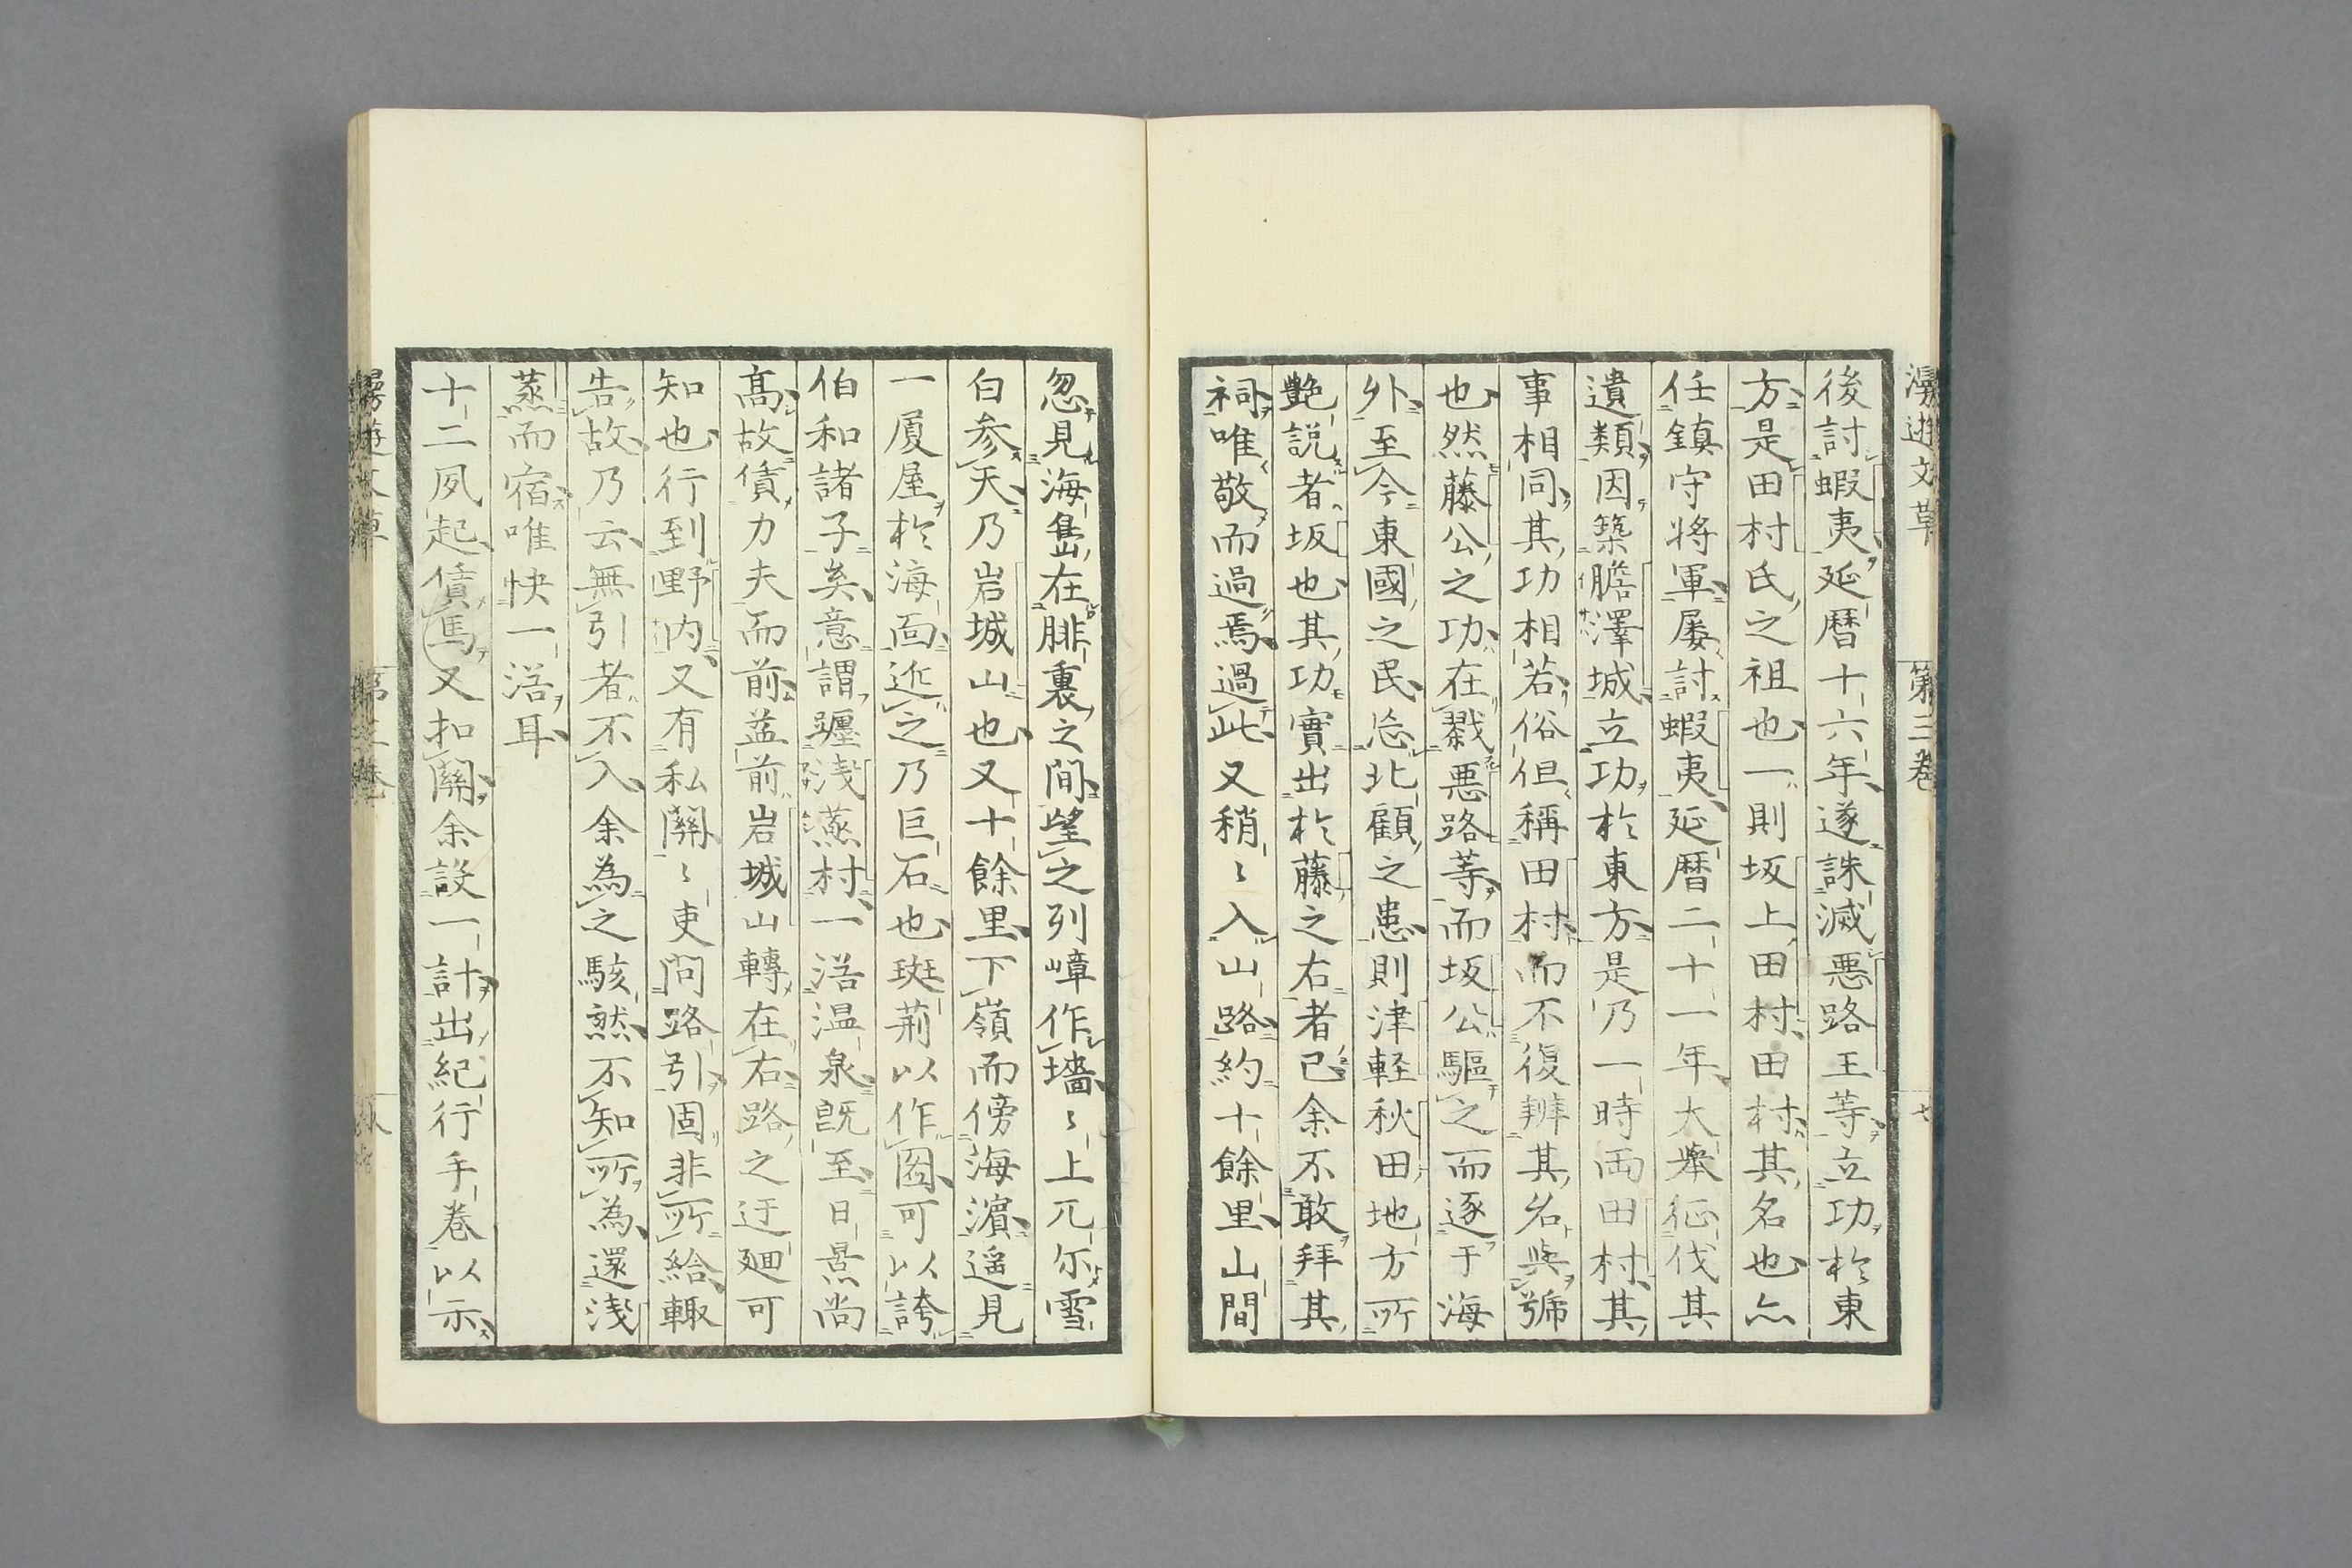 漫遊文草
第三卷
七
後討蝦夷延暦十六年遂誅滅悪路王等立功於東
方是田村氏之祖也一則坂上田村田村其名也亦
任鎮守将軍屡討蝦夷延暦二十一年大擧征伐其
遺類因築膽澤城立功於東方是乃一時両田村其
事相同其功相若俗但稱田村而不復辨其名與號
也然藤公之功在戮悪路等而坂公驅之而逐于海
外至今東國之民忘北顧之患則津軽秋田地方所
艶説者坂也其功實出於藤之右者已余不敢拜其
祠唯敬而過焉過此又稍〻入山路約十餘里山間
忽見海嶌在腓裏之間望之列嶂作墻〻上兀尓雪
白参天乃岩城山也又十餘里下嶺而傍海濵遥見
一厦屋於海面近之乃巨石也斑荊以作圏可以誇
伯和諸子矣意謂躔浅蒸村一浴温泉既至日景尚
髙故債力夫而前益前岩城山轉在右路之迂廻可
知也行到野内又有私關〻吏問路引固非所給輙
告故乃云無引者不入余為之駭然不知所為還浅
蒸而宿唯快一浴耳
十二夙起債馬又扣關余設一計出紀行手巻以示
漫遊文草
第三卷